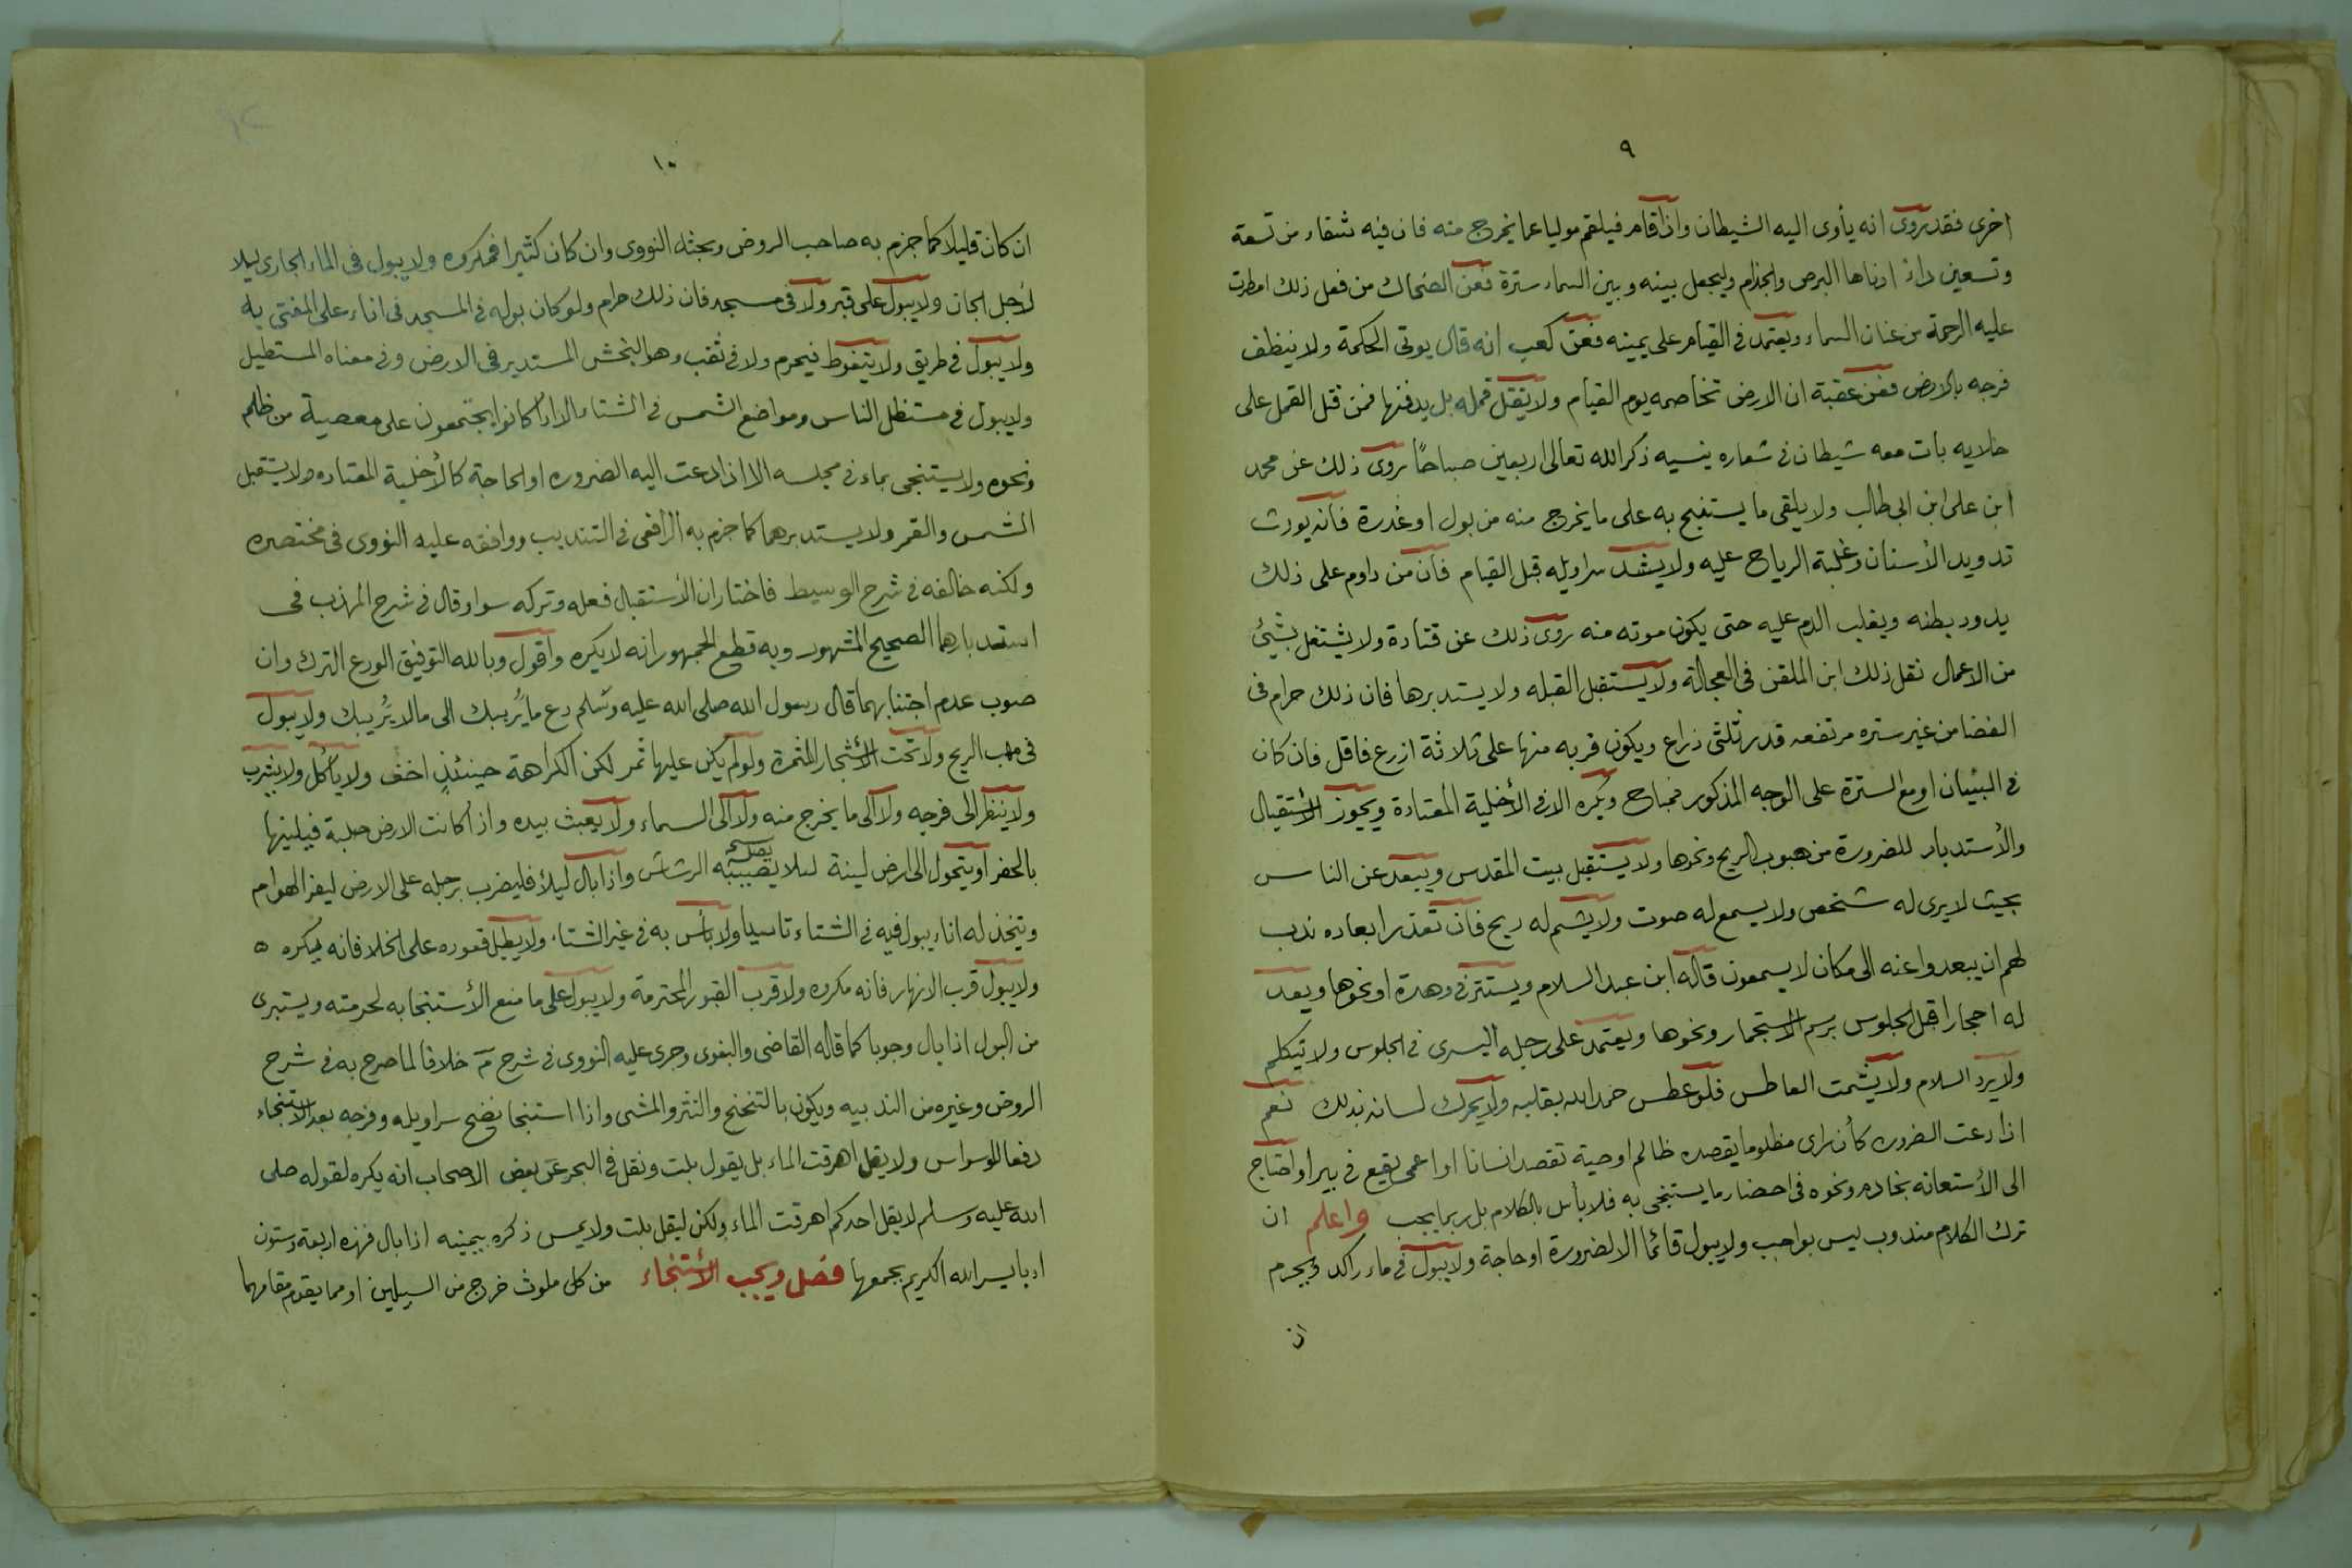 ٩
اخرى فقد روى انه يأوى اليه الشيطان واذا قام فيلقم موليا عما يخرج منه فان فيه شفاء من تسعة
وتسعين داء ادناها البرص والجذام وليجعل بينه وبين السماء سترة فعن الضحاك من فعل ذلك امطرت
عليه الرحمة من عنان السماء ويعتمد فى القيام على يمينه فعن كعب انه قال يوتى الحكمة ولا ينظف
فرجه بالارض فعن عقبة ان الارض تخاصمه يوم القيام ولا يقتل قمله بل يدفنها فمن قتل القمل على
خلايه بات معه شيطان فى شعاره ينسيه ذكر الله تعالى اربعين صباحا روى ذلك عن محمد
ابن على ابن ابى طالب ولا يلقى ما يستنبح به على ما يخرج منه من بول او غدرة فانه يورث
تدويد الأسنان وغلبة الرياح عليه ولا يشد سراويله قبل القيام فان من داوم على ذلك
يدود بطنه ويغلب الدم عليه حتى يكون موته منه روى ذلك عن قتادة ولا يشتغل بشئ
من الاعمال نقل ذلك ابن الملقن فى العجالة ولا يستقبل القبله ولا يستدبرها فان ذلك حرام فى
الفضا من غير ستره مرتفعه قدر ثلثى ذراع ويكون قربه منها على ثلاثة ازرع فاقل فان كان
فى البنيان او مع السترة على الوجه المذكور فمباح ويكره الا فى الأخلية المعتادة ويجوز الأستقبال
والأستدبار للضرورة من هبوب الريح ونحوها ولا يستقبل بيت المقدس ويبعد عن الناس
بحيث لا يرى له شخص ولا يسمع له صوت ولا يشم له ريح فان تعذر ابعاده ندب
لهم ان يبعدوا عنه الى مكان لا يسمعون قاله ابن عبد السلام ويستتر فى وهدة او نحوها ويعد
له احجارا قبل الجلوس برسم الاستجمار ونحوها ويعتمد على رجله اليسرى فى الجلوس ولا يتكلم
ولا يرد السلام ولا يشمت العاطس فلو عطس حمد الله بقلبه ولا يحرك لسانه بذلك نعم
اذا دعت الضروره كأن راى مظلوما يقصده ظالم او حية تقصد انسانا او اعمى يقع فى بير او احتاج
الى الأستعانه بخادم ونحوه فى احضار ما يستنجى به فلا بأس بالكلام بل ربما يجب واعلم ان
ترك الكلام مندوب ليس بواجب ولا يبول قائما الا لضرورة او حاجة ولا يبول فى ماء راكد ويحرم
ان
١٠
ان كان قليلا كما جزم به صاحب الروض وبحثه النووى وان كان كثيرا فمكروه ولا يبول فى الماء الجارى ليلا
لأجل الجان ولا يبول على قبر ولا فى مسجد فان ذلك حرام ولو كان بوله فى المسجد فى اناء على المفتى به
ولا يبول فى طريق ولا يتغوط فيحرم ولا فى ثقب وهو البخش المستدير فى الارض وفى معناه المستطيل
ولا يبول فى مستظل الناس ومواضع الشمس فى الشتا الا اذا كانوا يجتمعون على معصية من ظلم
ونحوه ولا يستنجى بماء فى مجلسه الا اذا دعت اليه الضروره او الحاجة كالأخلية المعتاده ولا يستقبل
الشمس والقمر ولا يستدبرهما كما جزم به الرافعى فى التنديب ووافقه عليه النووى فى مختصره
ولكنه خالفه فى شرح الوسيط فاختار ان الأستقبال فعله وتركه سوا وقال فى شرح المهذب فى
استدبارهما الصحيح المشهور وبه قطع الجمهور انه لا يكره واقول وبالله التوفيق الورع الترك وان
صوب عدم اجتنابهما قال رسول الله صلى الله عليه وسلم دع ما يُريبك الى ما لا يُريبك ولا يبول
فى مهب الريح ولا تحت الأشجار المثمرة ولو لم يكن عليها ثمر لكن الكراهة حينئذٍ اخف ولا يأكل ولا يشرب
ولا ينظر الى فرجه ولا الى ما يخرج منه ولا الى السماء ولا يعبث بيده واذا كانت الارض صلبة فيلينها
بالحفر او يتحول الى ارض لينة لئلا يصيبه الرشاش واذا بال ليلاً فليضرب برجله على الارض ليفر الهوام
ويتخذ له اناء يبول فيه فى الشتاء تاسيا ولا بأس به فى غير الشتاء ولا يطيل قعوده على الخلا فانه يكره ه
ولا يبول قرب الانهار فانه مكروه ولا قرب القبور المحترمة ولا يبول على ما منع الأستنجا به لحرمته ويستبرى
من البول اذا بال وجوبا كما قاله القاضى والبغوى وجرى عليه النووى فى شرح م خلافا لما صرح به فى شرح
الروض وغيره من الندبيه ويكون بالتنحنح والنثر والمشى واذا استنجا نضح سراويله وفرجه بعد الاستنجاء
دفعا للوسواس ولا يقل اهرقت الماء بل يقول بلت ونقل فى البحر عن بعض الاصحاب انه يكره لقوله صلى
الله عليه وسلم لا يقل احدكم اهرقت الماء ولكن ليقل بلت ولا يمس ذكره بيمينه اذا بال فهذه اربعة وستون
ادبا يسر الله الكريم بجمعها فصل ويجب الأستنجاء من كل ملوث خرج من السبيلين او مما يقوم مقامهما